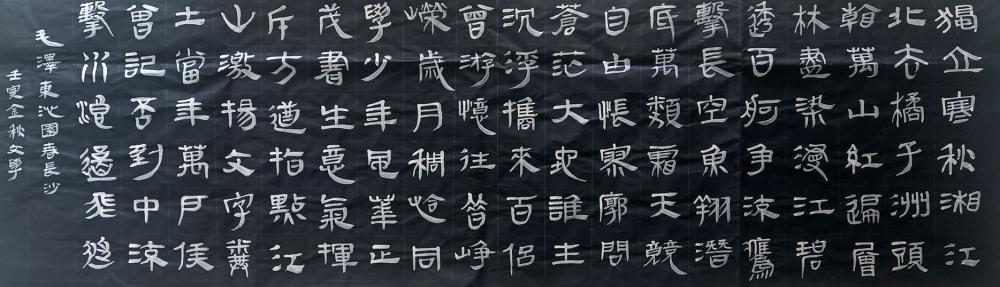 獨立寒秋湘江
北去橘子洲頭
看萬山紅遍層
林盡染漫江碧
透百舸爭流鷹
擊長空魚翔潛
底萬類霜天競
自由悵寥廓問
蒼茫大地誰主
沉浮攜來百侶
曾游憶往昔崢
嶸歲月稠恰同
學少年風華正
茂書生意氣揮
斥方遒指點江
山激揚文字糞
土當年萬戶侯
曾記否到中流
擊水浪遏飛
毛澤東沁園春長沙
壬寅金秋文學